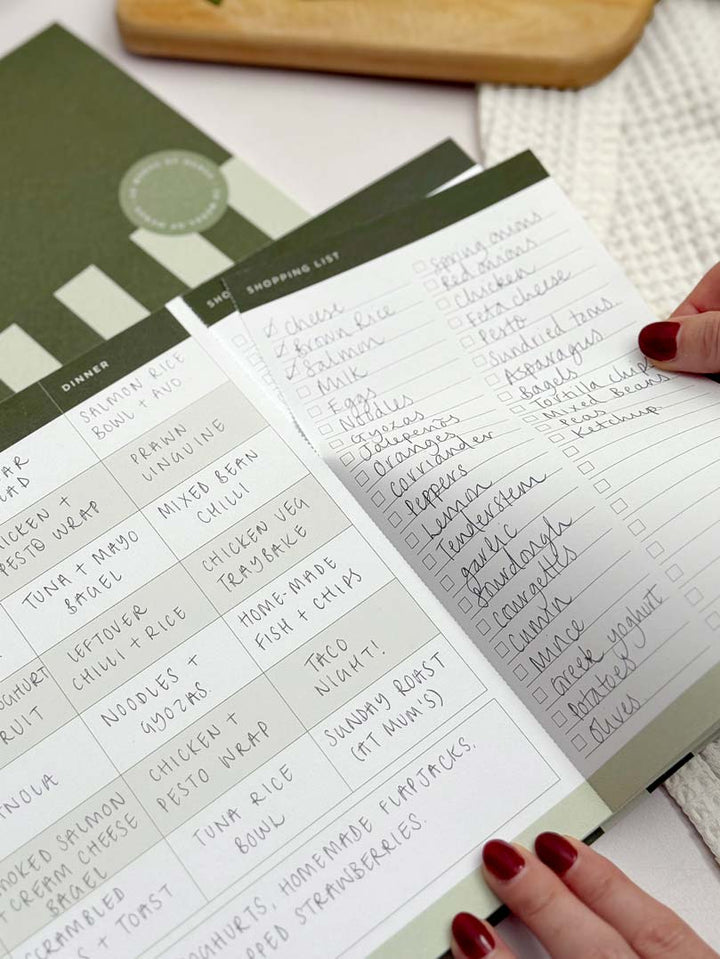 SHOPPING LIST
Cheese
Brown Rice
Salmon
Milk
Eggs
Noodles
Gyozas
Jalepeños
Oranges
Corriander
Peppers
Lemon
Tenderstem
garlic
Sourdough
Courgettes
Cumin
Mince
Greek yoghurt
Potatoes
Olives
Spring onions
Red onions
Chicken
Feta cheese
Pesto
Sundried toms
Asparagus
Bagels
Tortilla chips
Mixed Beans
Peas
Ketchup
SHO
DINNER
SALMON RICE
BOWL + AVO
PRAWN
LINGUINE
MIXED BEAN
CHILLI
CHICKEN VEG
TRAYBAKE
HOME-MADE
FISH + CHIPS
TACO
NIGHT!
SUNDAY ROAST
(AT MUM'S)
AR
AD
ICKEN +
PESTO WRAP
TUNA + MAYO
BAGEL
LEFTOVER
CHILLI + RICE
NOODLES +
GYOZAS
CHICKEN +
PESTO WRAP
TUNA RICE
BOWL
OGHURT
RUIT
NOLA
MOKED SALMON
+ CREAM CHEESE
BAGEL
SCRAMBLED
S + TOAST
OGHURTS, HOMEMADE FLAPJACKS.
PPED STRAWBERRIES.